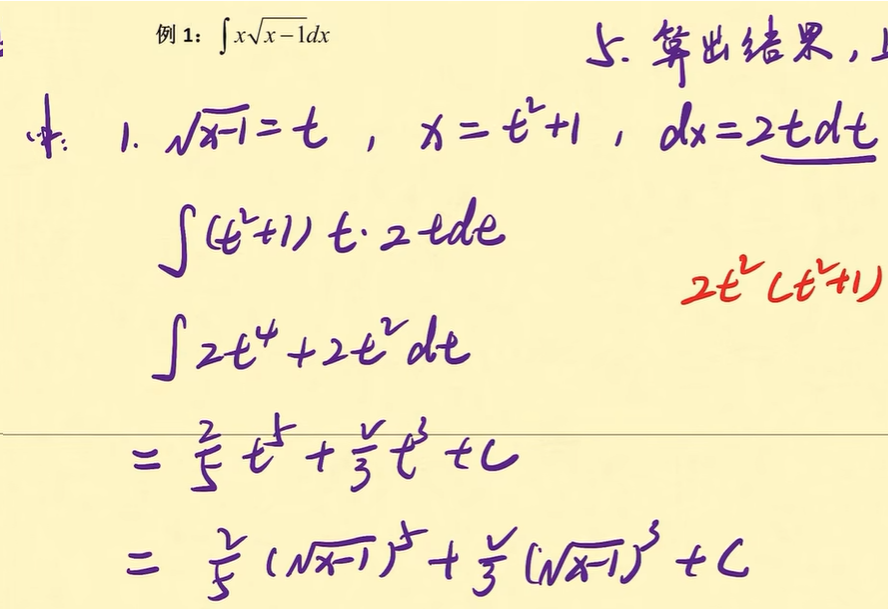 例 1： ∫x√(x−1)dx
5. 算出结果，
1. √(x-1) = t , x = t²+1 , dx = 2tdt
∫(t²+1) t·2tdt
2t²(t²+1)
∫2t⁴+2t²dt
= 2/5 t⁵ + 2/3 t³ + C
= 2/5 (√(x-1))⁵ + 2/3 (√(x-1))³ + C